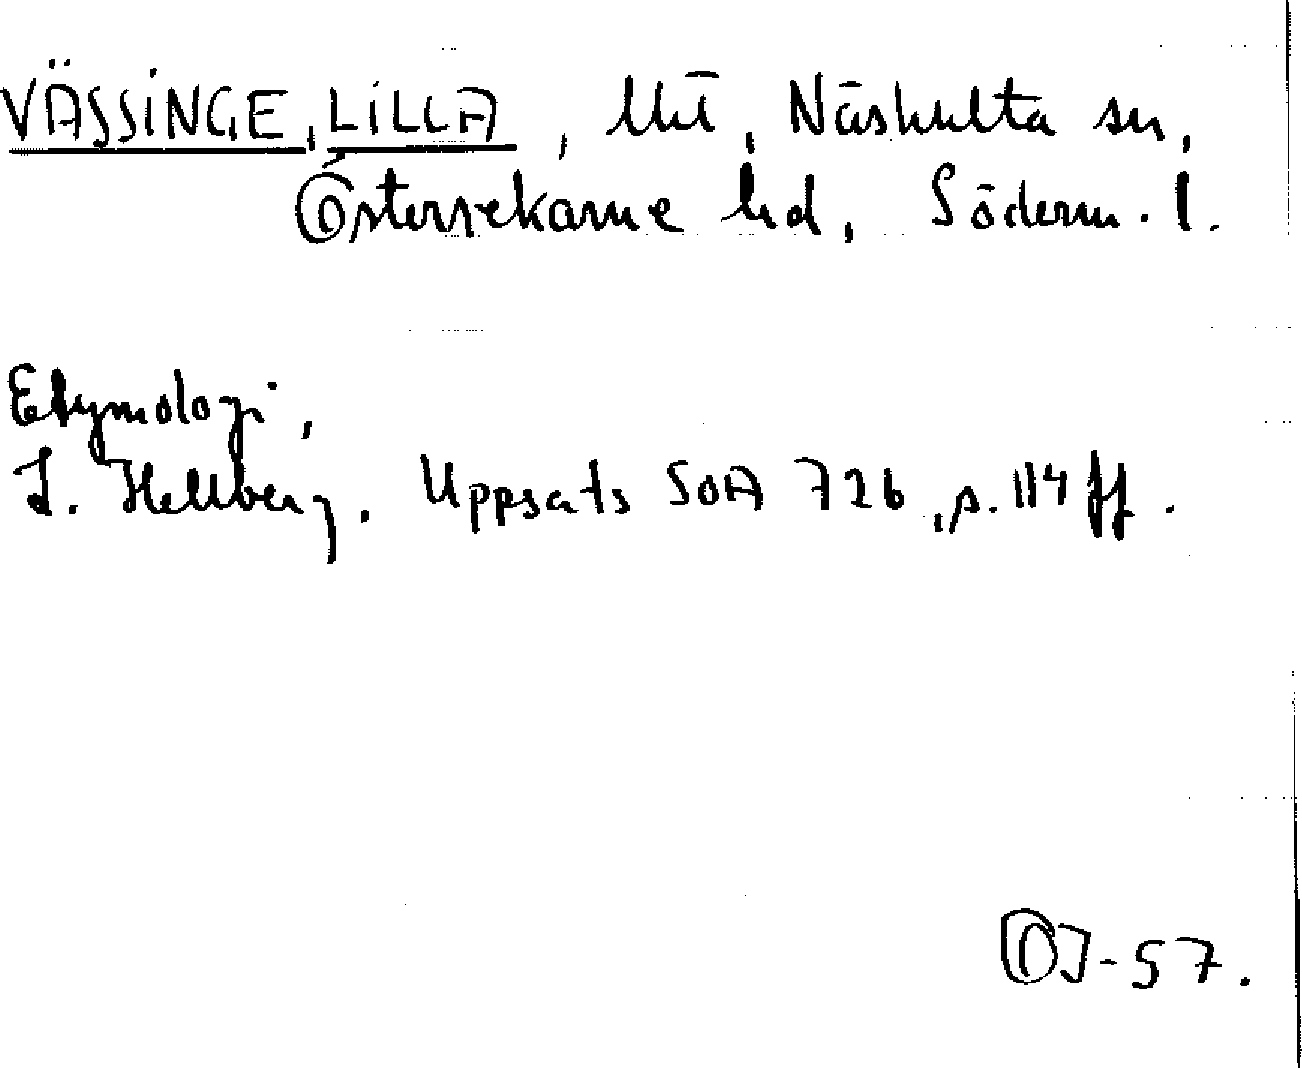 VÄSSINGE, LILLA, Näshulta sn,
Österrekarne hd, Söderm. l.
Etymologi,
L. Hellberg. Uppsats SOA 726, s. 114 ff.
ÖJ-57.